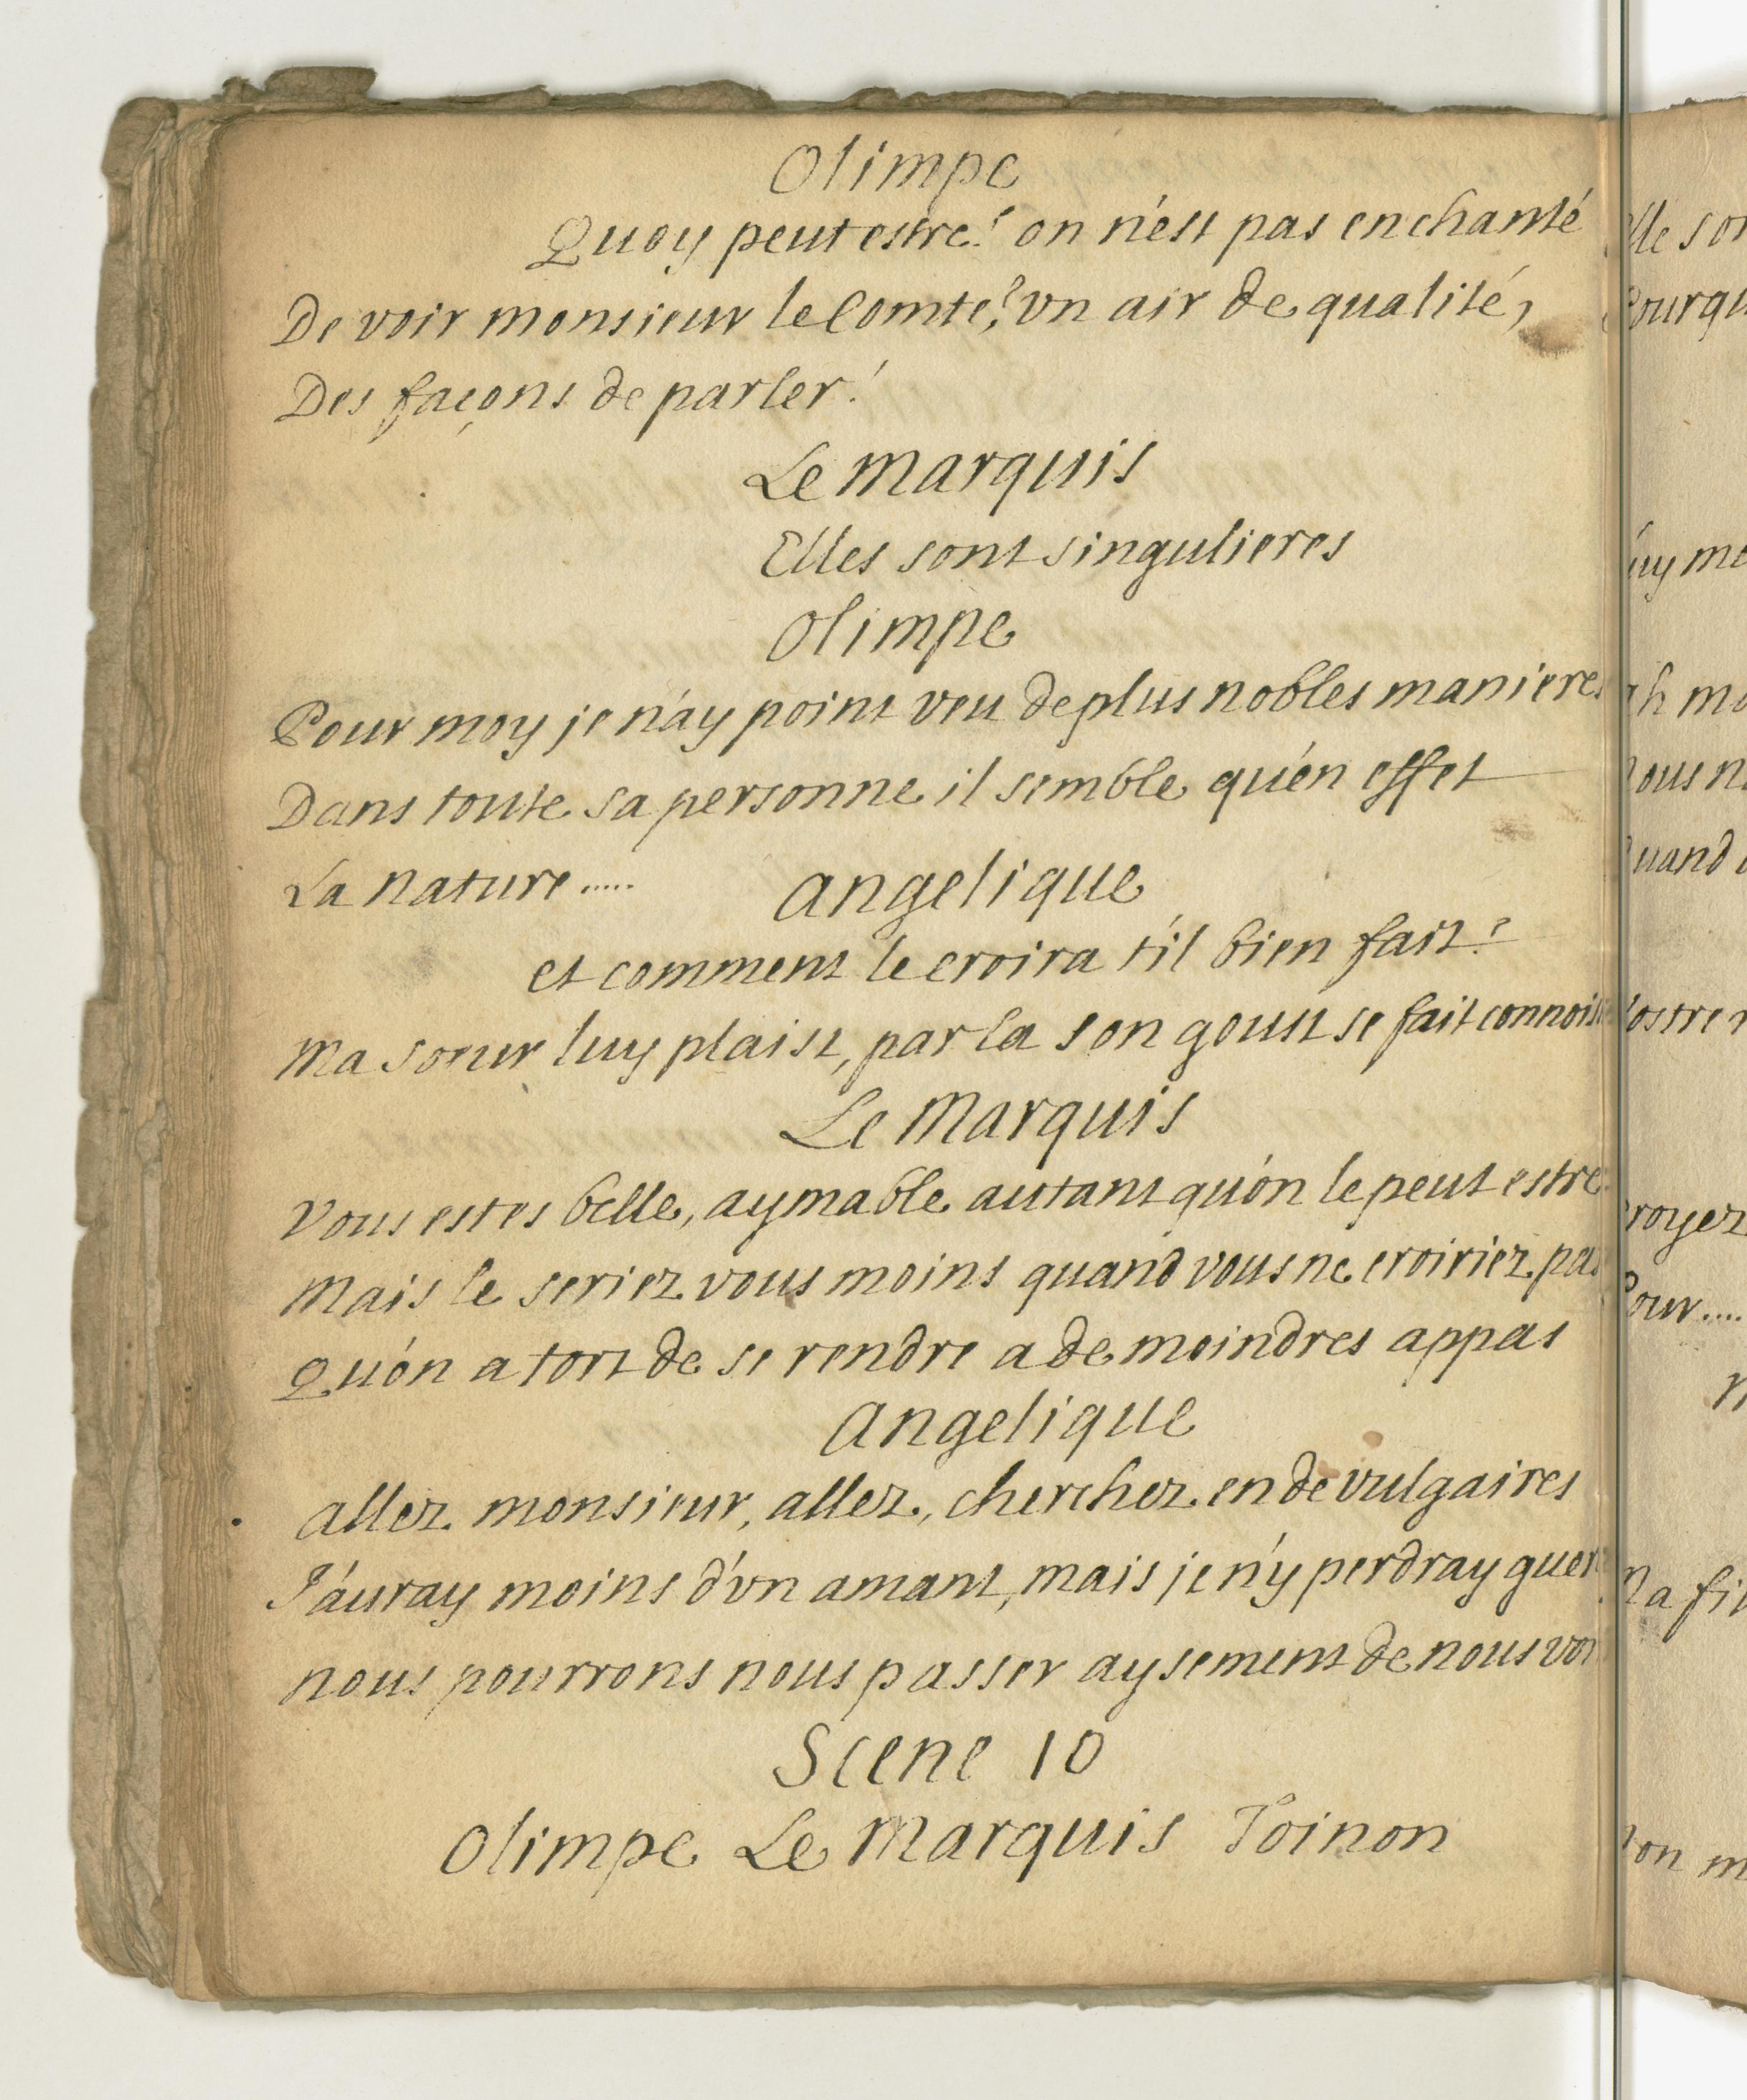 Olimpe
Quoy peut estre? on n'est pas enchanté
De voir monsieur le Comte? vn air de qualité,
Des façons de parler!
Le marquis
Elles sont singulieres
Olimpe
Pour moy je n'ay point veu de plus nobles manieres
Dans toute sa personne il semble qu'en effet
La nature..... angelique
et comment le croira t'il bien fait?
Ma soeur luy plaist, par la son goust se fait connois
Le Marquis
Vous estes belle, aymable autant qu'on le peut estre
Mais le seriez vous moins quand vous ne croiriez pas
Qu'on a tort de se rendre a de moindres appas
Angelique
allez monsieur, allez, cherchez en de vulgaires
J'auray moins d'vn amant, mais je n'y perdray guer
nous pourrons nous passer aysement de nous voi
Scene 10
Olimpe Le Marquis Toinon
lle son
Pourqu
uy mo
ah mo
ous n
uand
ostre
royez
Pour....
N
Ma fi
on m